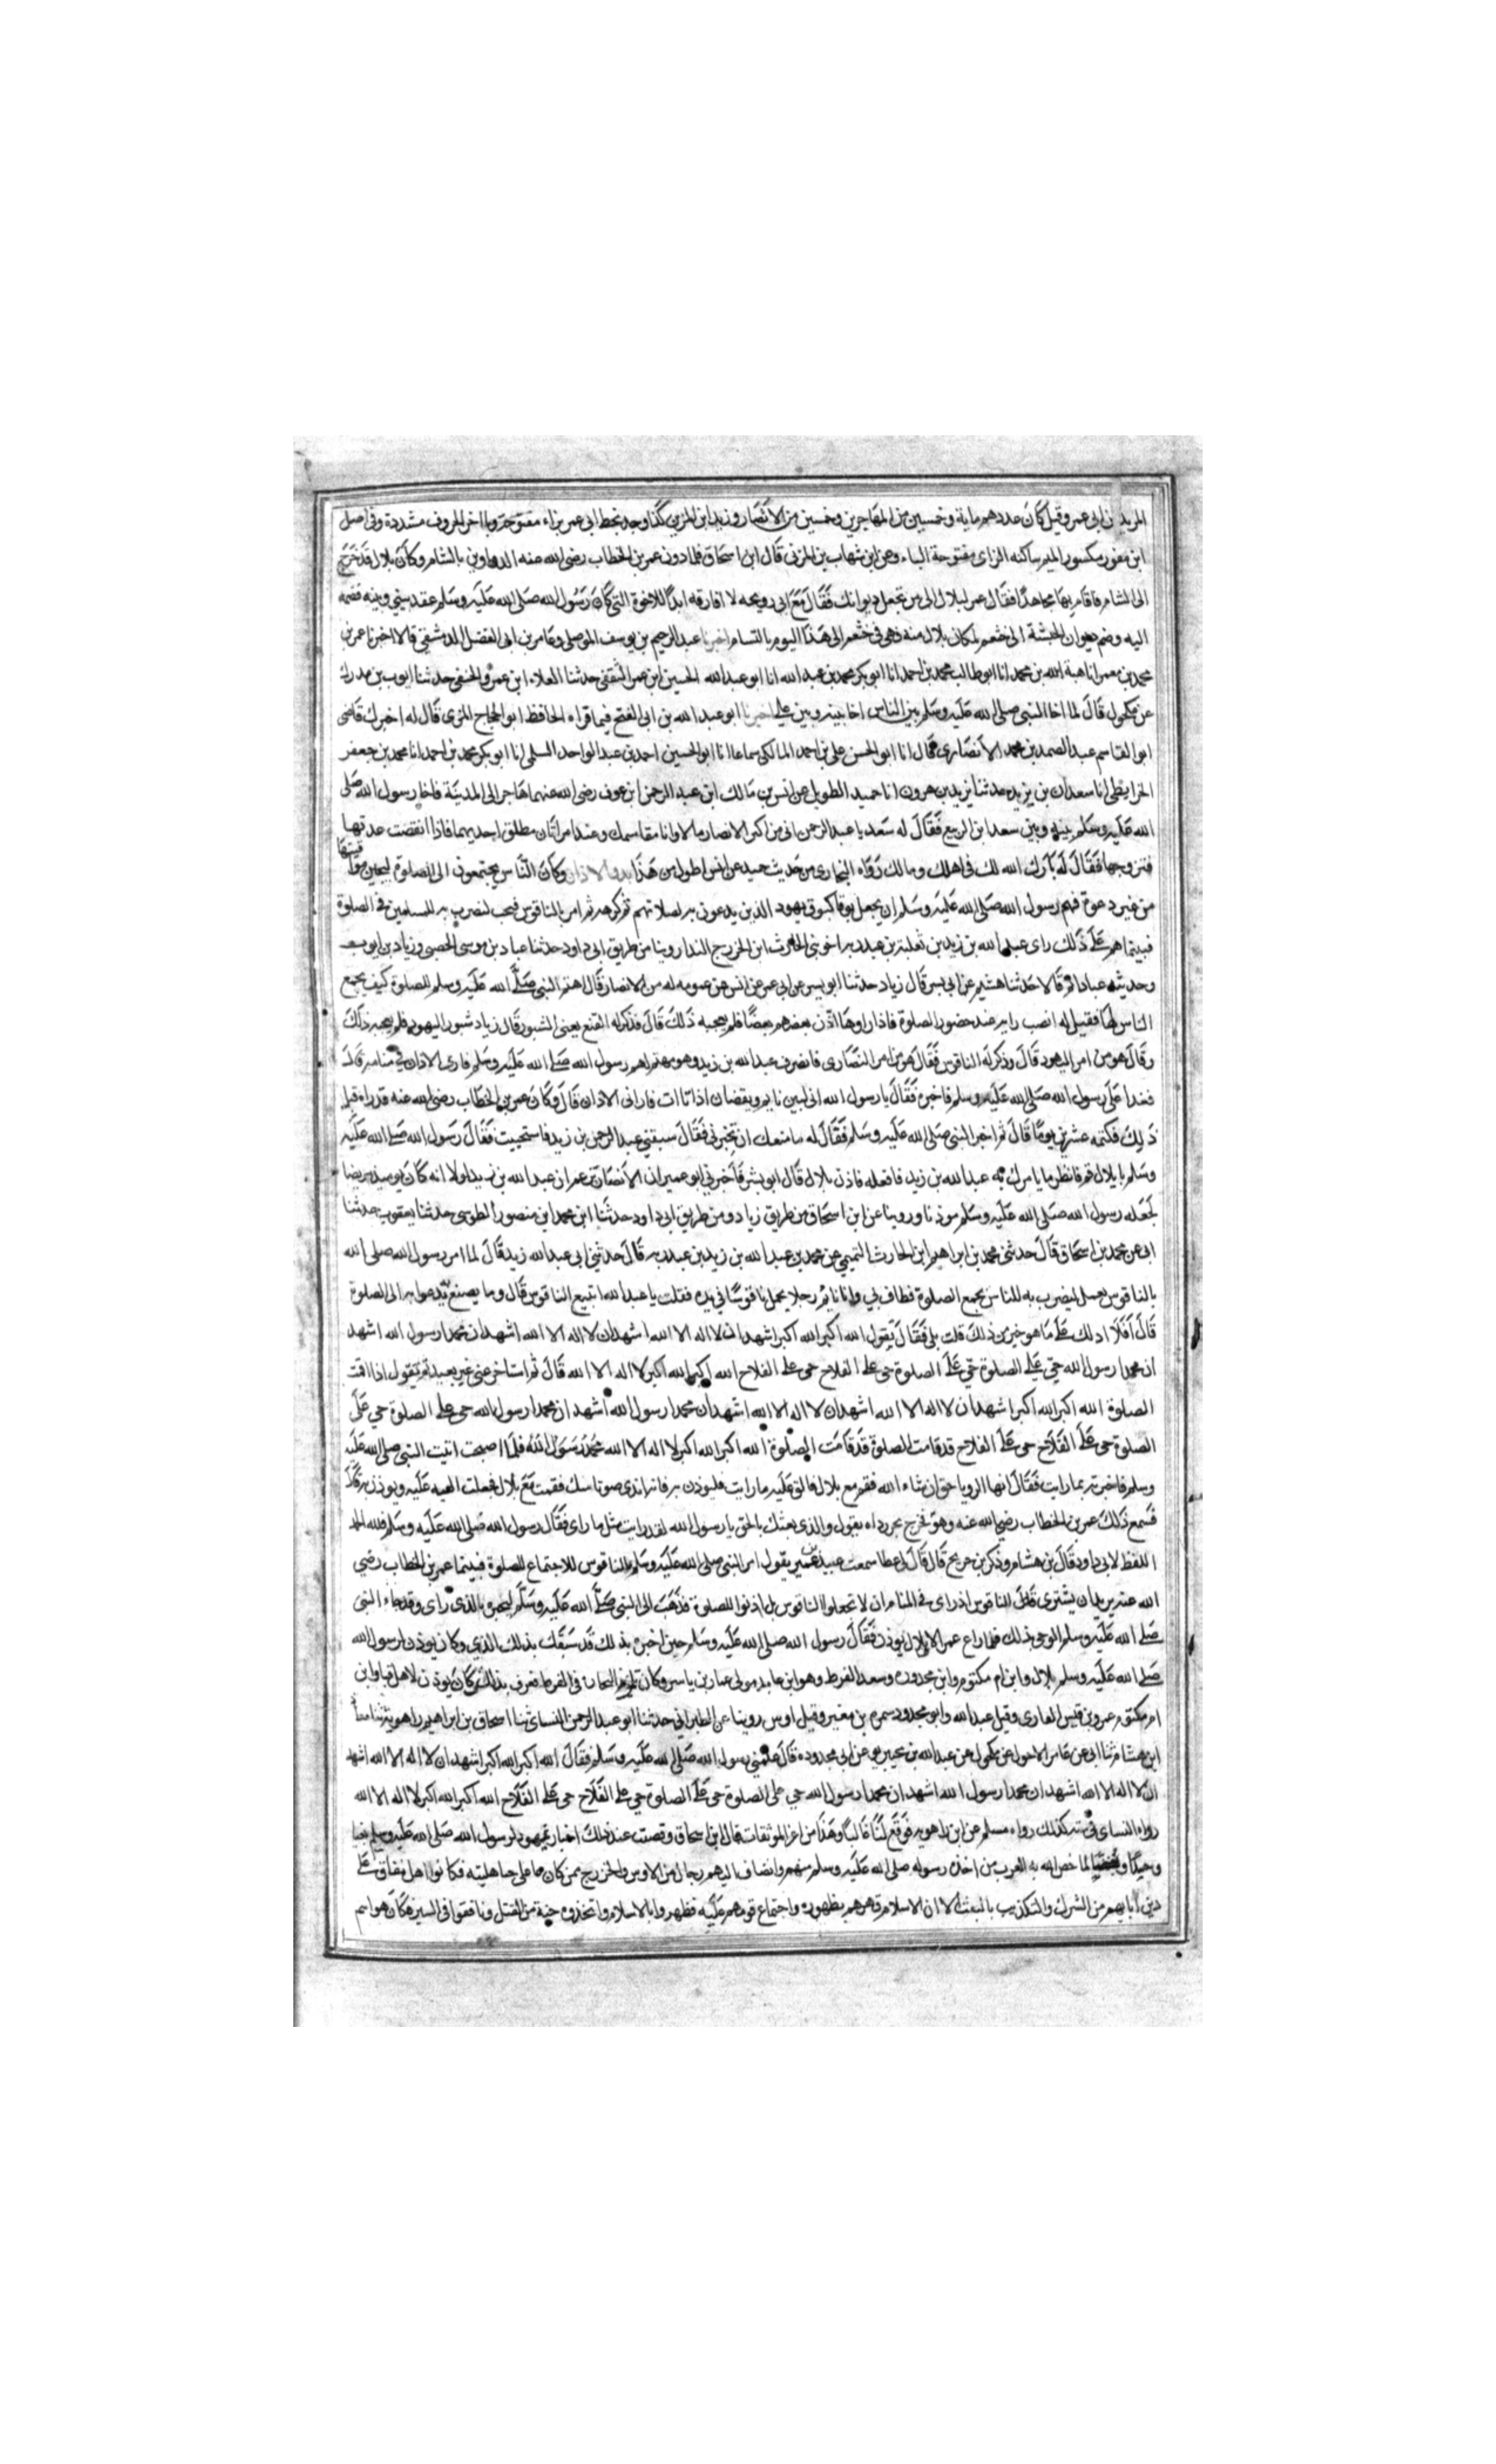 المزيد ن ابى عمر وقيل كان عددهم ماية وخمسين من المهاجرين وخمسين من الانصار وزيد ابن المزين كذا وجد بخط ابى عمر براء مفتوحة ويا اخر الحروف مشددة وفى اصل
ابن مفوز مكسور الميم ساكنه الزاى مفتوحة الياء وعن ابن شهاب بن المزنى قال ابن اسحاق فلما دون عمر بن الخطاب رضى الله عنه الدواوين بالشام وكان بلال قد خرج
الى الشام فاقام بها مجاهدا فقال عمر لبلال الى من تجعل ديوانك فقال مع ابى رويحه لا افارقه ابدا للاخوة التى كان رسول الله صلى الله عليه وسلم عقد بينى وبينه فضمه
اليه وضم ديوان الحبشة الى خثعم لمكان بلال منه فهى فى خثعم الى هذا اليوم بالشام اخبرنا عبد الرحيم بن يوسف الموصلى وعامر بن ابى الفضل الدمشقى قالا اخبرنا عمر بن
محمد بن معمر انا هبة الله بن محمد انا ابو طالب محمد بن احمد انا ابو بكر محمد بن عبد الله انا ابو عبد الله الحسين ابن عمر الثقفى حدثنا العلاء ابن عمرو الحنفى حدثنا ايوب بن مدرك
عن مكحول قال لما اخا النبى صلى الله عليه وسلم بين الناس اخا بينه وبين على اخبرنا ابو عبد الله بن ابى الفتح فيما قراه الحافظ ابو الحجاج المزى قال له اخبرك قاضى
ابو القاسم عبد الصمد بن محمد الانصارى قال انا ابو الحسن على بن احمد المالكى سماعا انا ابو الحسين احمد بن عبد الواحد السلمى انا ابو بكر محمد بن احمد انا محمد بن جعفر
الخرايطى انا سعدان بن يزيد حدثنا يزيد بن هرون انا حميد الطويل عن انس بن مالك ابن عبد الرحمن ابن عوف رضى الله عنهما هاجر الى المدينة فاخا رسول الله صلى
الله عليه وسلم بينه وبين سعد ابن الربيع فقال له سعد يا عبد الرحمن انى من اكثر الانصار مالا وانا مقاسمك وعندى امراتان مطلق احديهما فاذا انقضت عدتها
فتزوجها فقال له بارك الله لك فى اهلك ومالك رواه البخارى من حديث حميد عن انس اطول من هذا بدو الاذان وكان الناس يجتمعون الى الصلوة لحين مواقيتها
من غير دعوة فهم رسول الله صلى الله عليه وسلم ان يجعل بوقا كبوق يهود الذين يدعون به لصلاتهم ثم كرهه ثم امر بالناقوس فنحت ليضرب به للمسلمين فى الصلوة
فبينما هم على ذلك راى عبد الله بن زيد بن ثعلبة بن عبد ربه اخو بنى الحارث ابن الخزرج النداء روينا من طريق ابى داود حدثنا عباد بن موسى الحصى وزياد بن ايوب
وحديثه عباد اتم قالا حدثنا هشيم عن ابى بشر قال زياد حدثنا ابو بشر عن ابى عمر عن انس عن عمومه له من الانصار قال اهتم النبى صلى الله عليه وسلم للصلوة كيف يجمع
الناس لها فقيل له انصب راية عند حضور الصلوة فاذا راوها اذن بعضهم بعضا فلم يعجبه ذلك قال فذكر له القنع يعنى الشبور قال زياد شبور اليهود فلم يعجبه ذلك
وقال هو من امر اليهود قال وذكر له الناقوس فقال هو من امر النصارى فانصرف عبد الله بن زيد وهو مهتم لهم رسول الله صلى الله عليه وسلم فارى الاذان فى منامه قال
فغدا على رسول الله صلى الله عليه وسلم فاخبره فقال يا رسول الله انى لبين نايم ويقضان اذ اتا ات فارانى الاذان قال وكان عمر بن الخطاب رضى الله عنه قد راه قبل
ذلك فكتمه عشرين يوما قال ثم اخبر النبى صلى الله عليه وسلم فقال له ما منعك ان تخبرنى فقال سبقنى عبد الرحمن بن زيد فاستحييت فقال رسول الله صلى الله عليه
وسلم يا بلال قم فانظر ما يامرك به عبد الله بن زيد فافعله فاذن بلال قال ابو بشر فاخبرنى ابو عمير ان الانصار تزعم ان عبد الله بن زيد لولا انه كان يوميذ مريضا
لجعله رسول الله صلى الله عليه وسلم موذنا وروينا عن ابن اسحاق من طريق زياد ومن طريق ابى داود حدثنا ابن محمد ابن منصور الطوسى حدثنا يعقوب حدثنا
ابى عن محمد بن اسحاق قال حدثنى محمد بن ابراهيم ابن الحارث التميمى عن محمد بن عبد الله بن زيد بن عبد ربه قال حدثنى ابى عبد الله زيد قال لما امر رسول الله صلى الله
بالناقوس يعمل ليضرب به للناس يجمع الصلوة فطاف بى وانا نايم رجلا يحمل ناقوسا فى يده فقلت يا عبد الله اتبيع الناقوس قال وما يصنع ندعوا به الى الصلوة
قال افلا ادلك على ما هو خير من ذلك قلت بلى فقال تقول الله اكبر الله اكبر اشهد ان لا اله الا الله اشهد ان لا اله الا الله اشهد ان محمد رسول الله اشهد
ان محمدا رسول الله حى على الصلوة حى على الصلوة حى على الفلاح حى على الفلاح الله اكبر الله اكبر لا اله الا الله قال ثم استاخر عنى غير بعيد ثم تقول اذا اقمت
الصلوة الله اكبر الله اكبر اشهد ان لا اله الا الله اشهد ان لا اله الا الله اشهد ان محمدا رسول الله اشهد ان محمدا رسول الله حى على الصلوة حى على
الصلوة حى على الفلاح حى على الفلاح قد قامت الصلوة قد قامت الصلوة الله اكبر الله اكبر لا اله الا الله محمد رسول الله فلما اصبحت اتيت النبى صلى الله عليه
وسلم فاخبرته بما رايت فقال انها الرويا حق ان شاء الله فقم مع بلال فالق عليه ما رايت فليوذن به فانه اندى صوتا منك فقمت مع بلال فجعلت القيه عليه ويوذن به قال
فسمع ذلك عمر بن الخطاب رضى الله عنه وهو فخرج يجر رداه يقول والذى بعثك بالحق يا رسول الله لقد رايت مثل ما راى فقال رسول الله صلى الله عليه وسلم فلله الحمد
اللفظ لابى داود قال بن هشام وذكر بن جريج قال قال لى عطا سمعت عبيد بن عمير يقول امر النبى صلى الله عليه وسلم بالناقوس للاجتماع للصلوة فبينما عمر بن الخطاب رضى
الله عنه يريد ان يشترى للناقوس اذ راى فى المنام ان لا تجعلوا الناقوس بل اذنوا للصلوة فذهب الى النبى صلى الله عليه وسلم ليخبره بالذى راى وقد جاء النبى
صلى الله عليه وسلم الوحى بذلك فما راع عمر الا بلال يوذن فقال رسول الله صلى الله عليه وسلم حين اخبره بذلك قد سبقك بذلك الذى وكان يوذن لرسول الله
صلى الله عليه وسلم بلال وابن ام مكتوم وابن محدوره وسعد القرط وهو ابن عايد مولى عمار بن ياسر وكان تلزم التجارة فى القرط فعرف بذلك وكان يوذن لاهل قبا وابن
ام مكتوم عمرو بن قيس العامرى وقيل عبد الله وابو محدود سمره بن مغير وقيل اوس روينا عن الطبرانى حدثنا ابو عبد الرحمن النساى ثنا اسحاق بن ابراهيم راهويه ثنا معاذ
ابن هشام ثنا ابى عن عامر الاحول عن مكحول عن عبد الله بن محيريز عن ابى محدوده قال علمنى رسول الله صلى الله عليه وسلم فقال الله اكبر الله اكبر اشهد ان لا اله الا الله اشهد
ان لا اله الا الله اشهد ان محمدا رسول الله اشهد ان محمدا رسول الله حى على الصلوة حى على الصلوة حى على الفلاح حى على الفلاح الله اكبر الله اكبر لا اله الا الله
رواه النساى فى سننه كذلك رواه مسلم عن ابن راهويه فوقع لنا غالبا وهذا من اعز الموثقات قال ابن اسحاق ونصبت عند ذلك احبار يهود لرسول الله صلى الله عليه وسلم بغيا
وحسدا لما خص الله به العرب من اخذه رسوله صلى الله عليه وسلم منهم وانضاف اليهم رجال من الاوس والخزرج ممن كان على جاهليته فكانوا اهل نفاق على
دين ابايهم من الشرك والتكذيب بالبعث الا ان الاسلام قهرهم بظهوره واجتماع قومهم عليه فظهروا بالاسلام واتخذوه جنة من القتل ونافقوا فى السير هكان هواهم